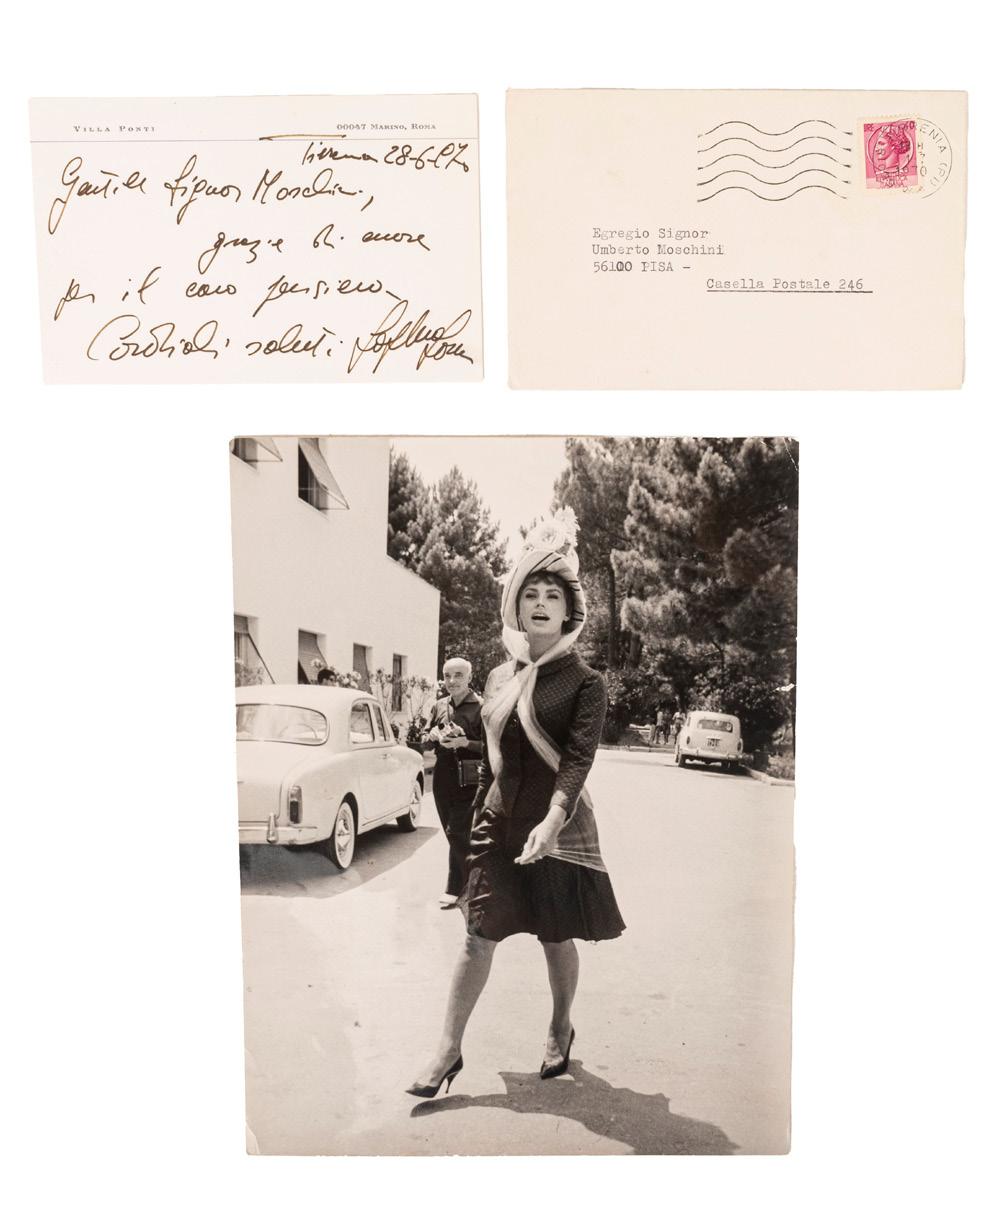 VILLA PONTI
00047 MARINO, ROMA
Tirrenia 28-6-1970
Gentile Signor Moschini,
grazie di cuore
per il caro pensiero
Cordiali saluti Sophia Loren
TIRRENIA (PI)
Egregio Signor
Umberto Moschini
56100 PISA -
Casella Postale 246